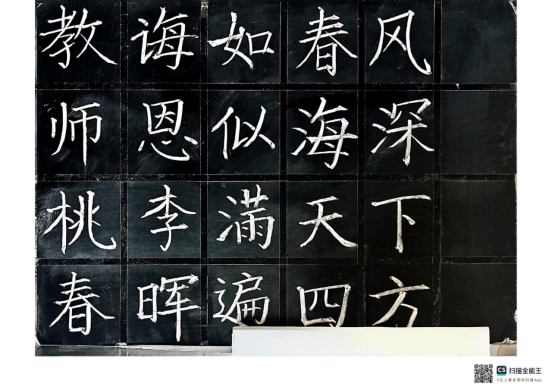 教诲如春风
师恩似海深
桃李满天下
春晖遍四方
扫描全能王